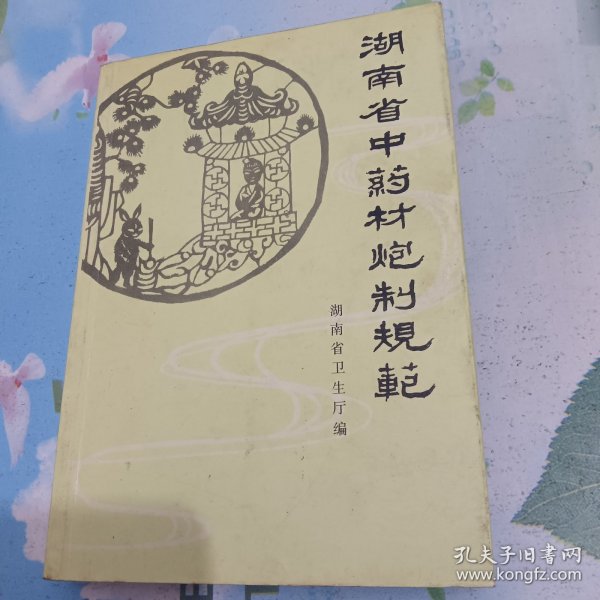 湖南省中药材炮制規範
湖南省卫生厅编
孔夫子旧书网
www.kongfz.com